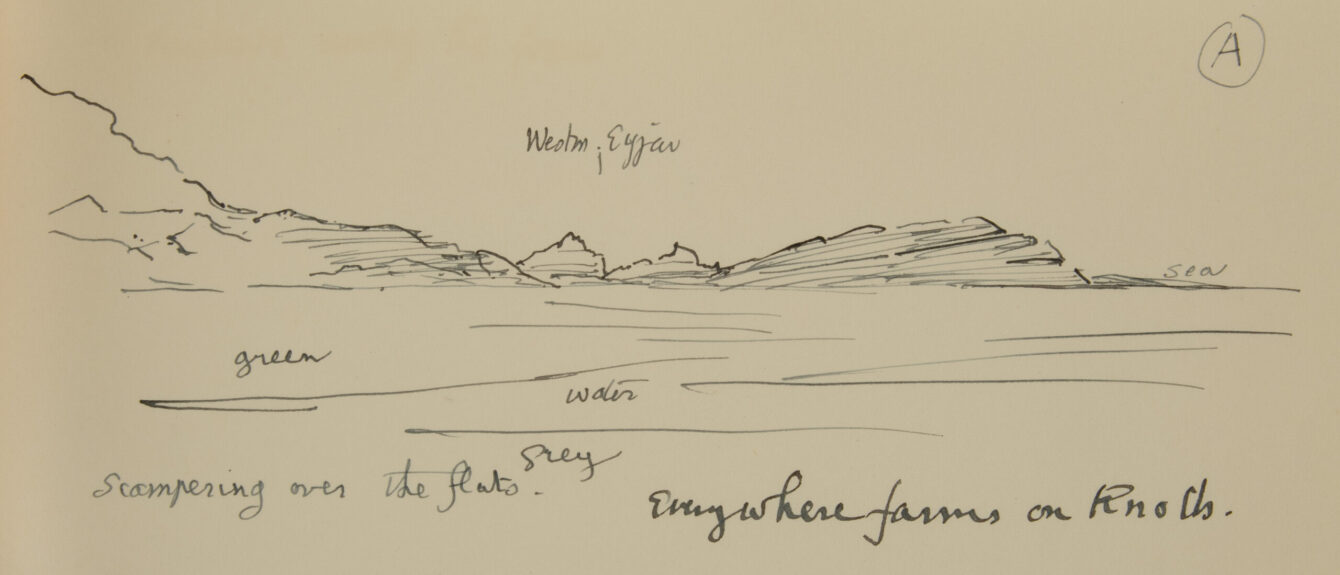 A
Westm; Eyjar
sea
green
water
grey
Scampering over the flats.
Everywhere farms on Knolls.